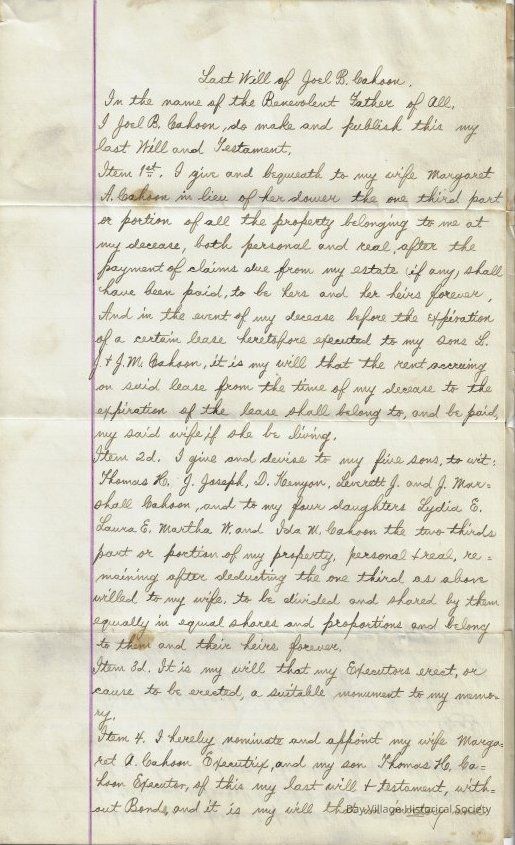 Last Will of Joel B. Cahoon.
In the name of the Benevolent Father of All,
I Joel B. Cahoon, do make and publish this my
last Will and Testament.
Item 1st. I give and bequeath to my wife Margaret
A. Cahoon in lieu of her dower the one third part
or portion of all the property belonging to me at
my decease, both personal and real, after the
payment of claims due from my estate (if any) shall
have been paid, to be hers and her heirs forever.
And in the event of my decease before the expiration
of a certain lease heretofore executed to my sons L.
J. & J. M. Cahoon, it is my will that the rent accruing
on said lease from the time of my decease to the
expiration of the lease shall belong to, and be paid,
my said wife, if she be living.
Item 2d. I give and devise to my five sons, to wit:
Thomas H. J. Joseph, D. Kenyon, Leverett J. and J. Mar-
shall Cahoon, and to my four daughters Lydia E.
Laura E. Martha W. and Ida M. Cahoon the two thirds
part or portion of my property, personal & real, re=
maining after deducting the one third as above
willed to my wife, to be divided and shared by them
equally in equal shares and proportions and belong
to them and their heirs forever.
Item 3d. It is my will that my Executors erect, or
cause to be erected, a suitable monument to my memo-
ry.
Item 4. I hereby nominate and appoint my wife Marga=
ret A. Cahoon Executrix, and my son Thomas H. Ca=
hoon Executor, of this my last will & testament, with=
out Bonds, and it is my will that
Bay Village Historical Society